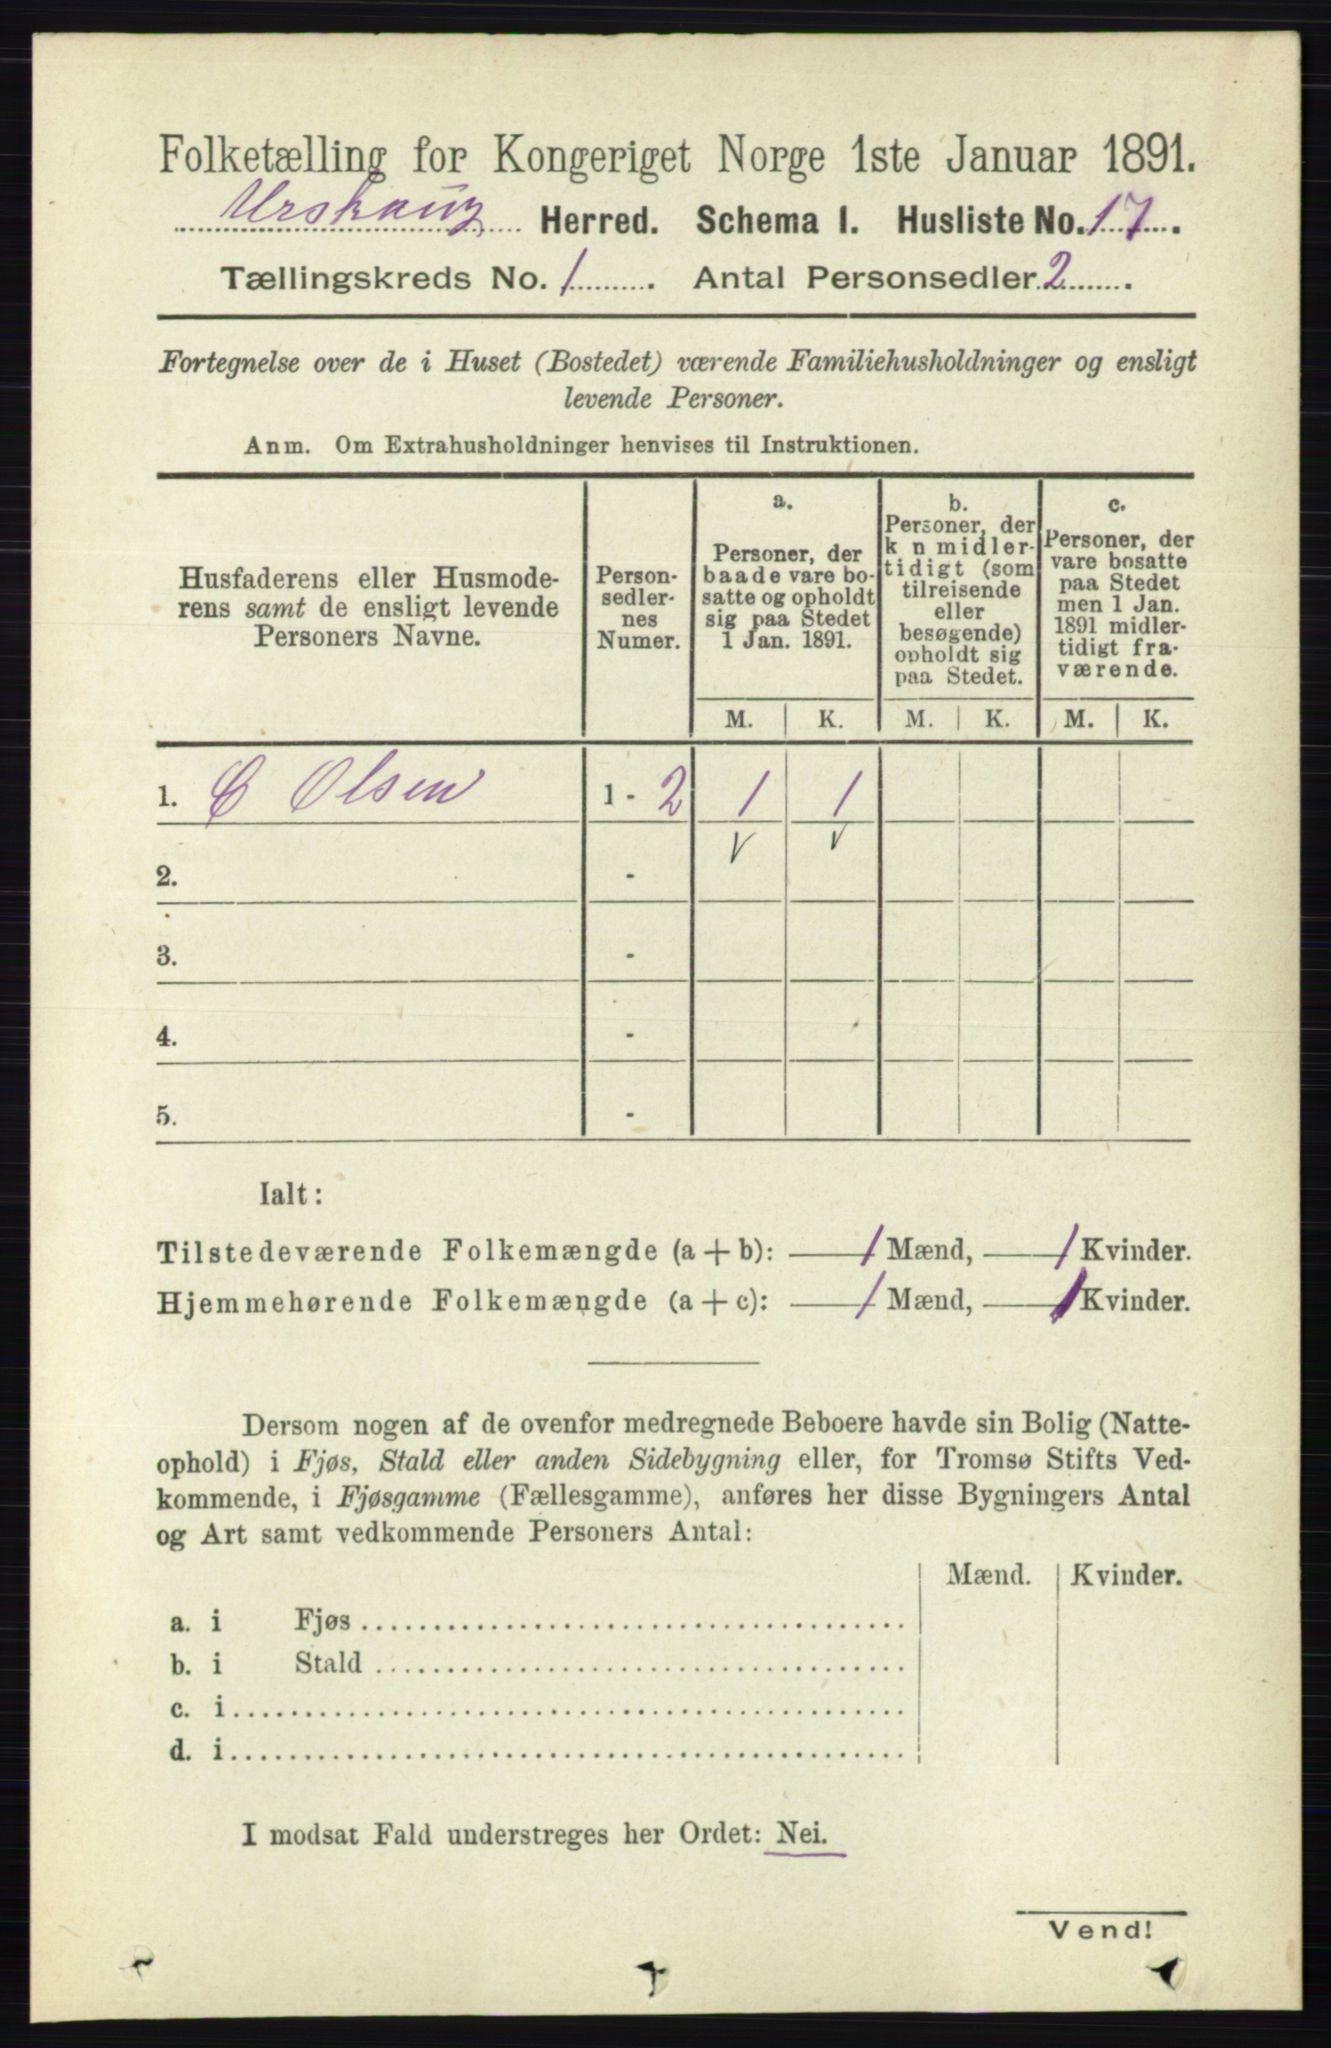 Folketælling for Kongeriget Norge 1ste Januar 1891.
Urskoug Herred. Schema I. Husliste No. 17.
Tællingskreds No. 1. Antal Personsedler 2.
Fortegnelse over de i Huset (Bostedet) værende Familiehusholdninger og ensligt
levende Personer.
Anm. Om Extrahusholdninger henvises til Instruktionen.
Husfaderens eller Husmode-
rens samt de ensligt levende
Personers Navne.
Person-
sedler-
nes
Numer.
a.
Personer, der
baade vare bo-
satte og opholdt
sig paa Stedet
1 Jan. 1891.
b.
Personer, der
k n midler-
tidigt (som
tilreisende
eller
besøgende)
opholdt sig
paa Stedet.
c.
Personer, der
vare bosatte
paa Stedet
men 1 Jan.
1891 midler-
tidigt fra-
værende.
M. K. M. K. M. K.
1. C Olsen 1 - 2 1 1
2. -
3. -
4. -
5. -
Ialt:
Tilstedeværende Folkemængde (a + b): 1 Mænd, 1 Kvinder.
Hjemmehørende Folkemængde (a + c): 1 Mænd, 1 Kvinder.
Dersom nogen af de ovenfor medregnede Beboere havde sin Bolig (Natte-
ophold) i Fjøs, Stald eller anden Sidebygning eller, for Tromsø Stifts Ved-
kommende, i Fjøsgamme (Fællesgamme), anføres her disse Bygningers Antal
og Art samt vedkommende Personers Antal:
Mænd. Kvinder.
a. i Fjøs
b. i Stald
c. i
d. i
I modsat Fald understreges her Ordet: Nei.
Vend!